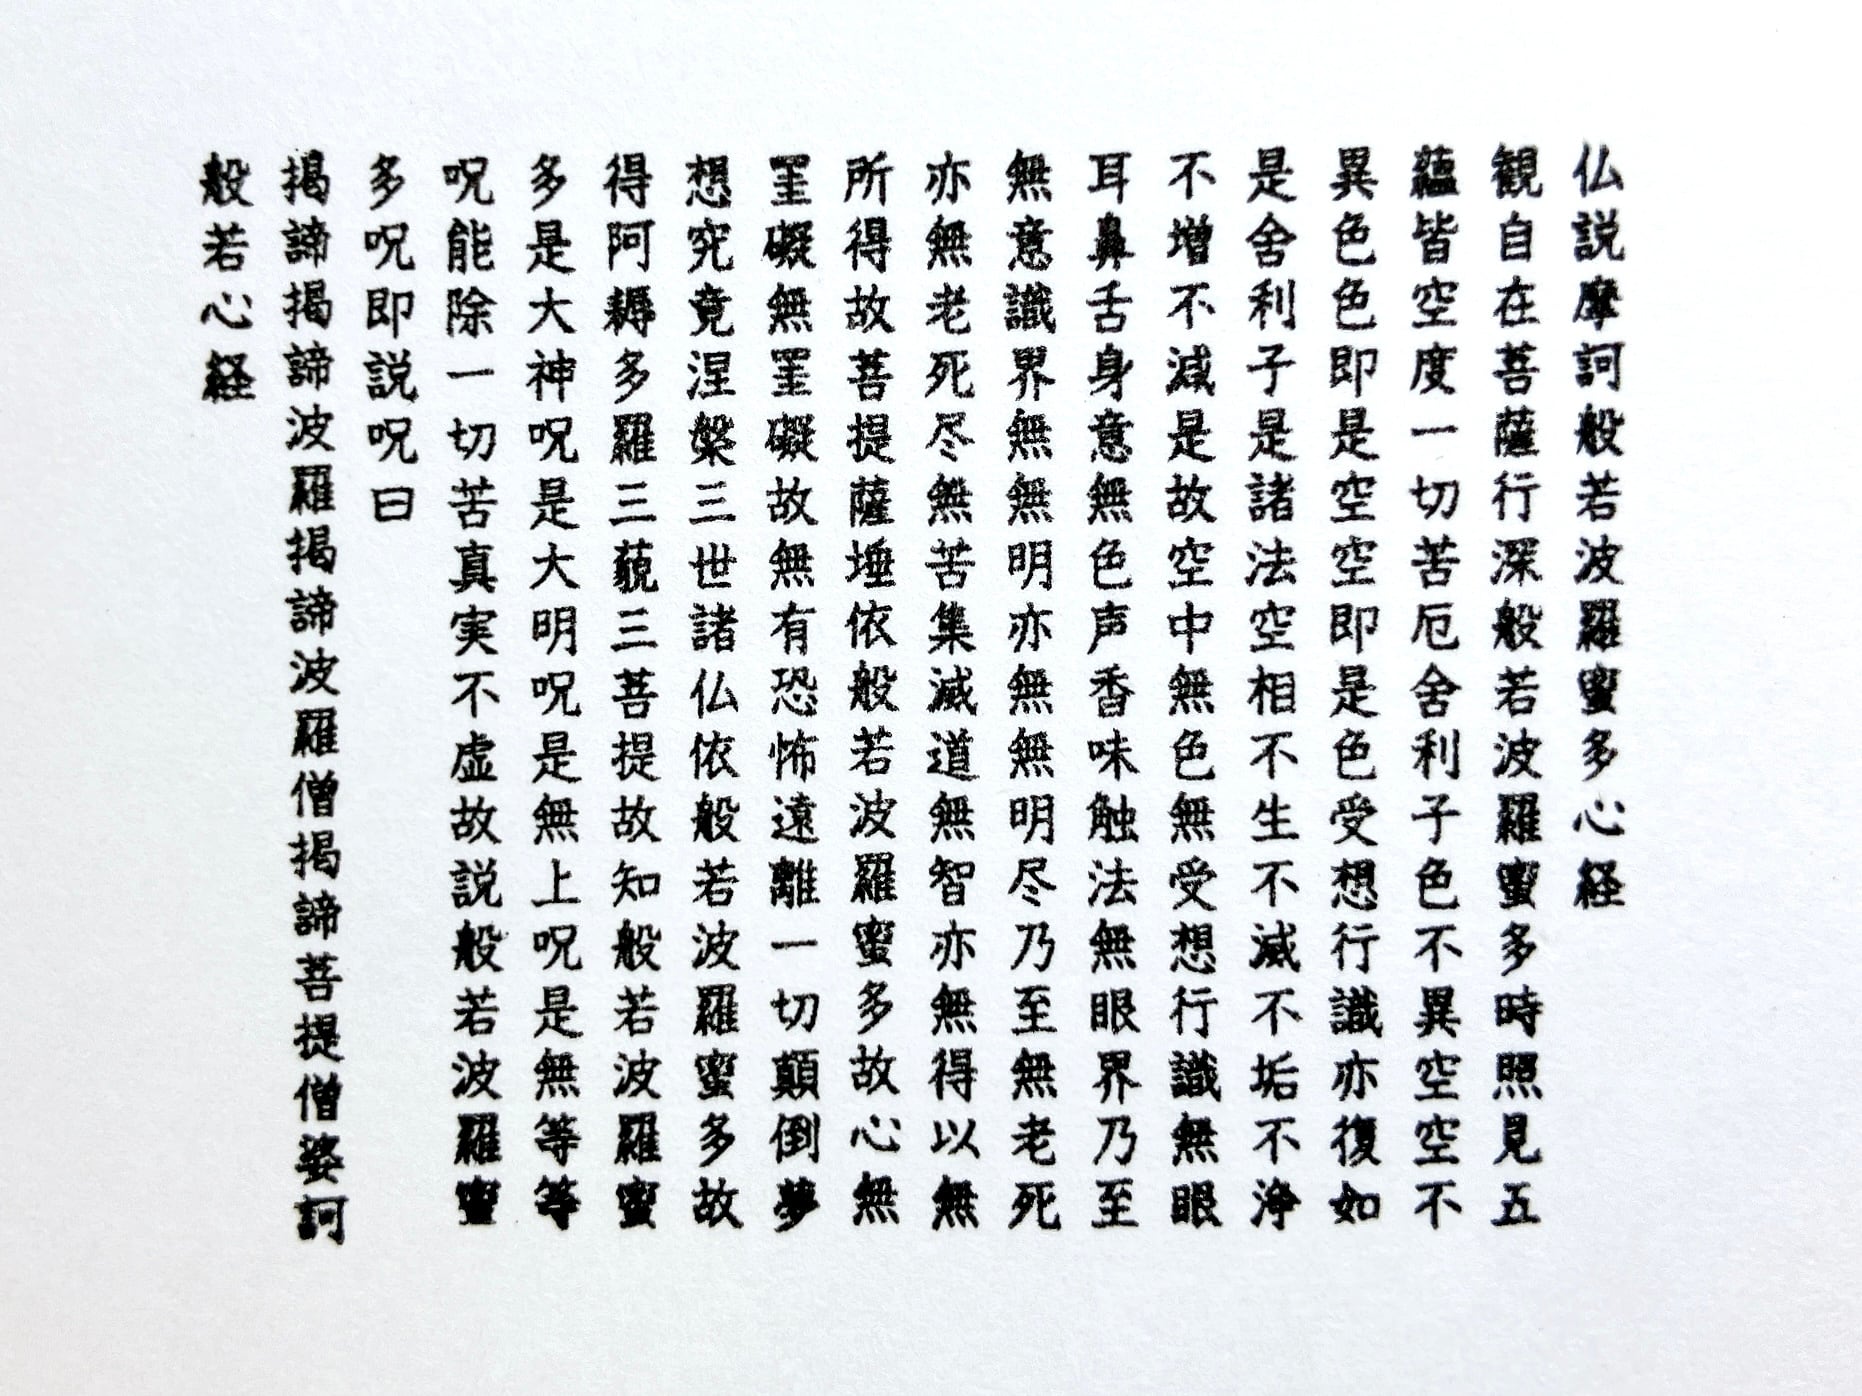 仏説摩訶般若波羅蜜多心経
観自在菩薩行深般若波羅蜜多時照見五
蘊皆空度一切苦厄舍利子色不異空空不
異色色即是空空即是色受想行識亦復如
是舍利子是諸法空相不生不滅不垢不浄
不増不減是故空中無色無受想行識無眼
耳鼻舌身意無色声香味触法無眼界乃至
無意識界無無明亦無無明尽乃至無老死
亦無老死尽無苦集滅道無智亦無得以無
所得故菩提薩埵依般若波羅蜜多故心無
罣礙無罣礙故無有恐怖遠離一切顛倒夢
想究竟涅槃三世諸仏依般若波羅蜜多故
得阿耨多羅三藐三菩提故知般若波羅蜜
多是大神呪是大明呪是無上呪是無等等
呪能除一切苦真実不虚故説般若波羅蜜
多呪即説呪曰
揭諦揭諦波羅揭諦波羅僧揭諦菩提僧婆訶
般若心経